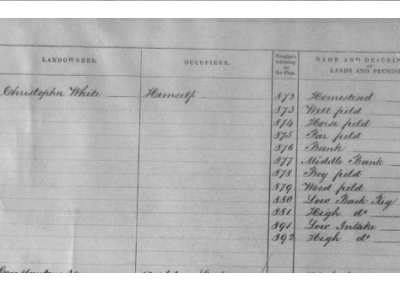 LANDOWNERS.
OCCUPIERS.
Numbers referring to the Plan.
NAME AND DESCRIP
LANDS AND PREMIS
Christopher White Himself 872 Homestead
873 Well field
874 Horse field
875 Far field
876 Bank
877 Middle Bank
878 Boy field
879 Wood field
880 Low Back Rig
881 High do
891 Low Intake
892 High do